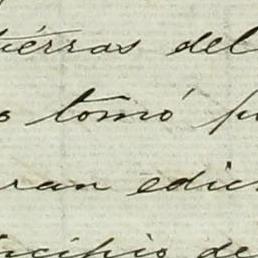 tierras del
s tomó p
ran edic
incipio de